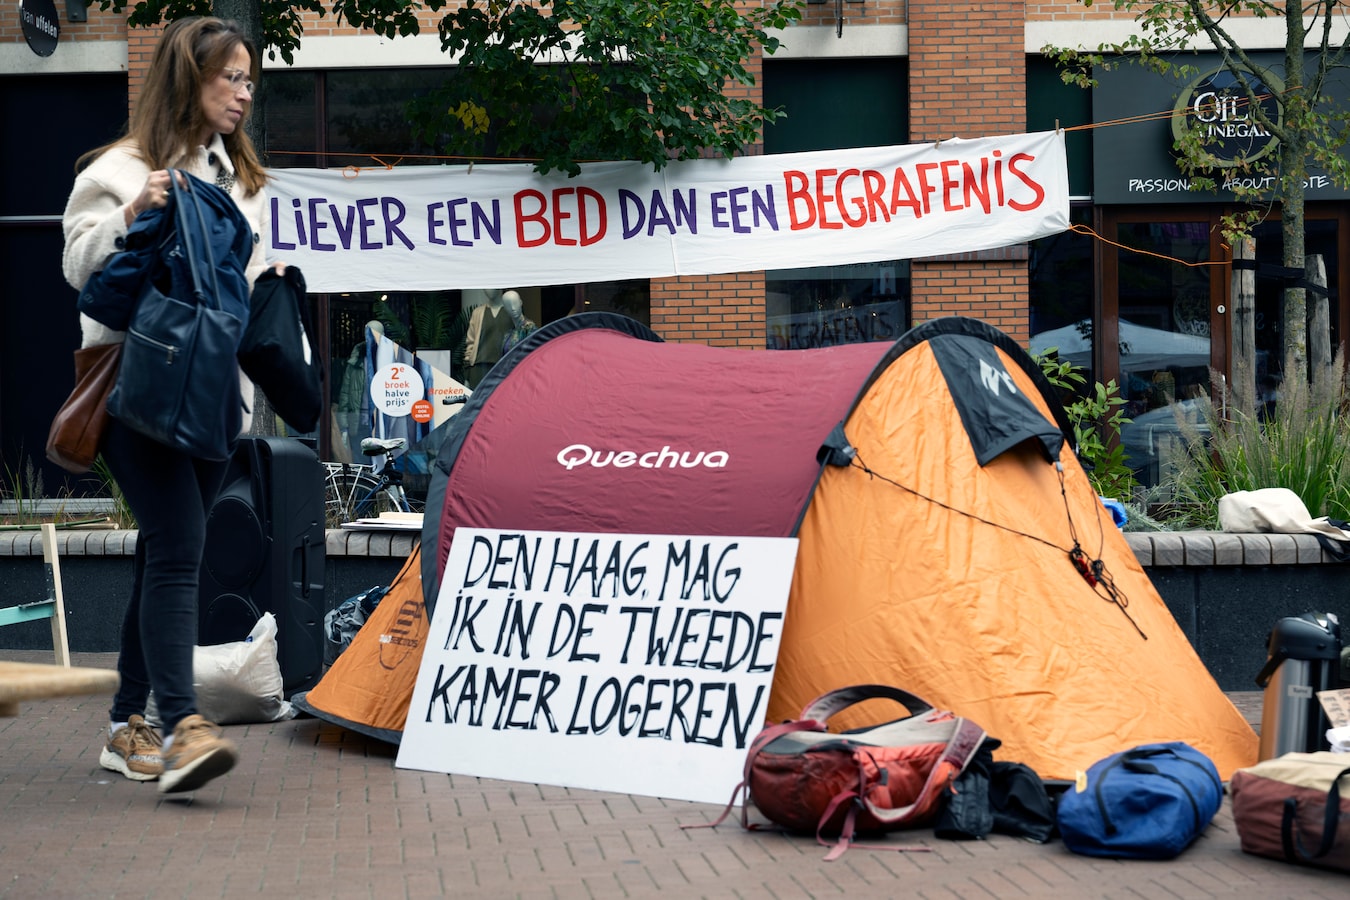 van uffelen
OIL
VINEGAR
PASSIONATE ABOUT TASTE
LIEVER EEN BED DAN EEN BEGRAFENIS
2e
broek
halve
prijs*
BESTEL
OOK
ONLINE
Broeken
Quechua
DEN HAAG, MAG
IK IN DE TWEEDE
KAMER LOGEREN